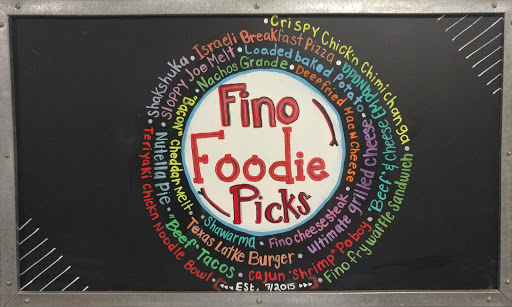 Fino
Foodie
Picks
Crispy Chick'n Chimichanga
Israeli Breakfast Pizza
Loaded baked potato
Empanada
Shakshuka
Sloppy Joe Melt
Nachos Grande
Deepfried Mac N Cheese
"Bacon" Cheddar Melt
Nutella Pie
Teriyaki Chick'n Noodle Bowl
"Beef" & Cheese
Ultimate grilled cheese
Fino Fry waffle Sandwich
Shawarma
Fino cheesesteak
Texas Latke Burger
"Beef" Tacos
Cajun "Shrimp" Poboy
Est. 7/2015